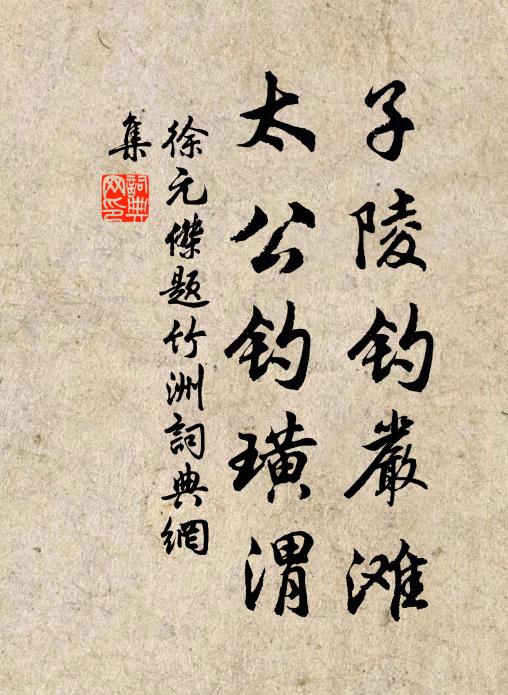 子陵钓嚴滩
太公钓璜渭
徐元傑题竹洲詞典網
集
詞典
网印